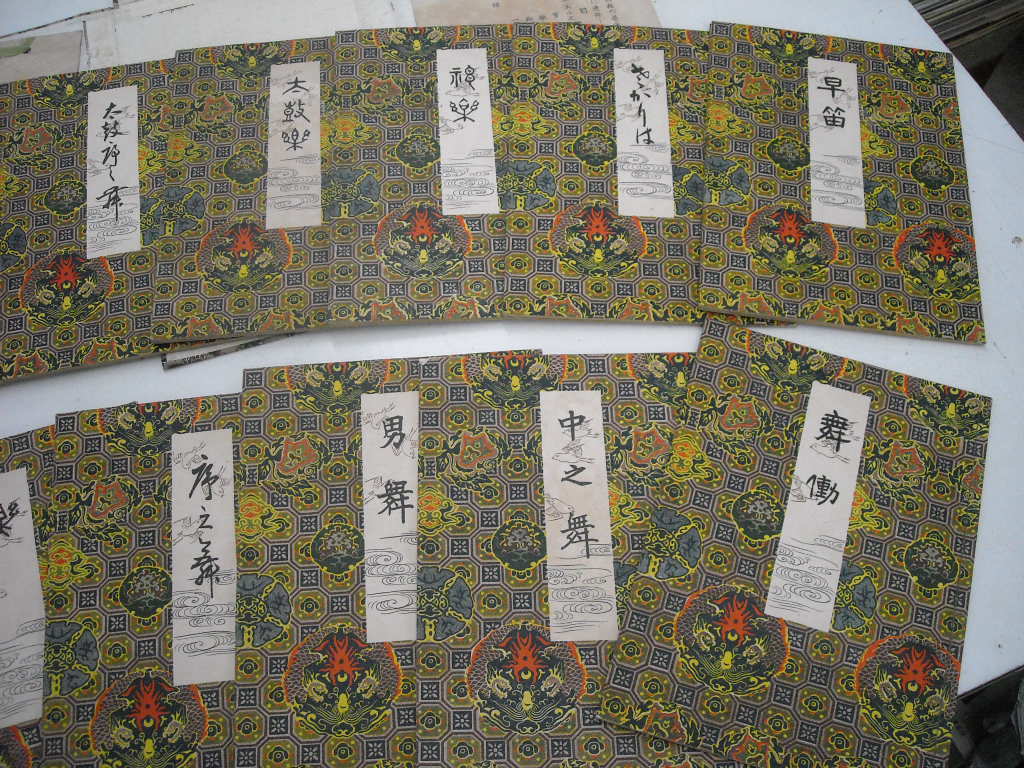 太鼓序之舞
太鼓樂
神樂
さかりは
早笛
樂
序之舞
男舞
中之舞
舞働